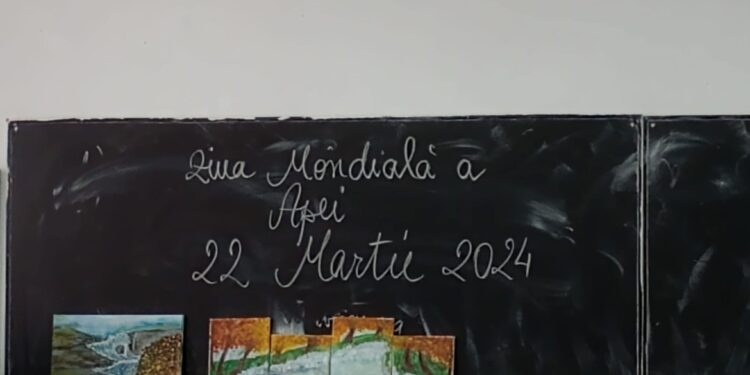 Ziua Mondială a
Apei
22 Martie 2024